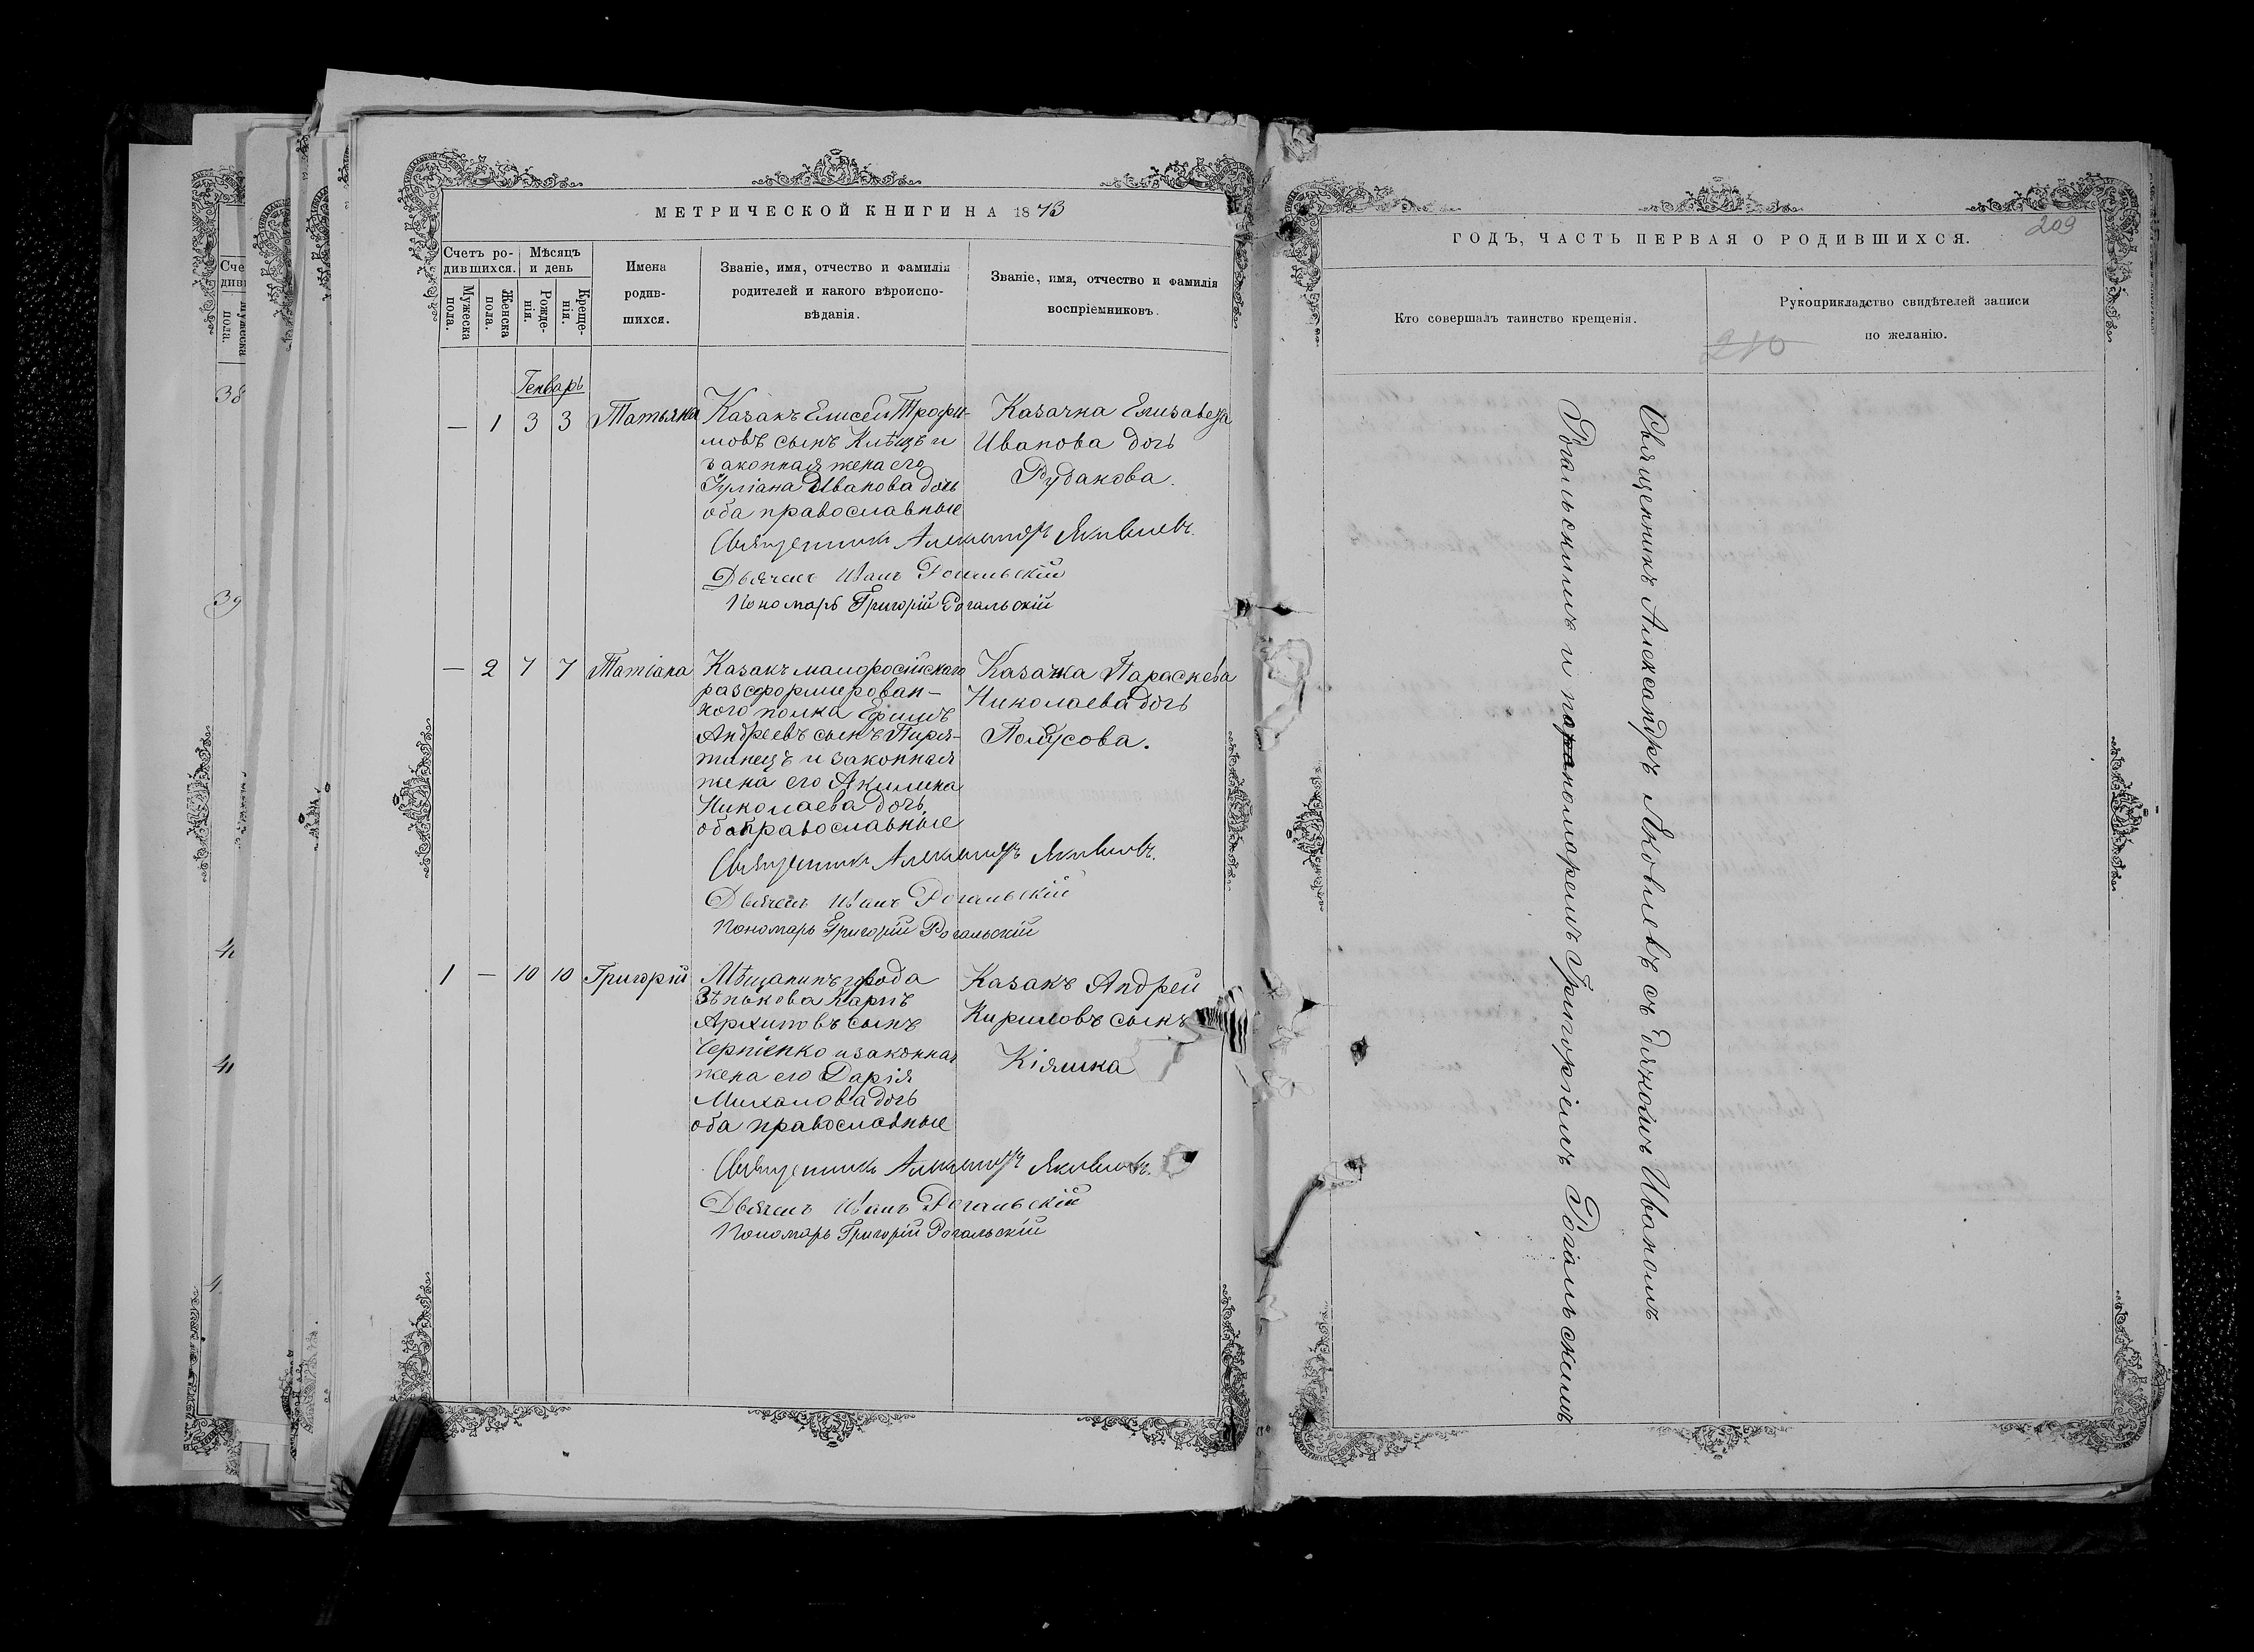 МЕТРИЧЕСКОЙ КНИГИ НА 1873
Счетъ ро-
дившихся.
Мѣсяцъ
и день
Мужеска
пола.
Женска
пола.
Рожде-
нія.
Креще-
нія.
Имена
родив-
шихся.
Званіе, имя, отчество и фамилія
родителей и какого вѣроиспо-
вѣданія.
Званіе, имя, отчество и фамилія
воспріемниковъ.
Генварь
— 1 3 3 Татьяна
Казакъ Елисей Трофи-
мовъ сынъ Клѣцъ и
законная жена его
Іуліана Иванова дочь
оба православные
Казачка Елизавета
Иванова дочь
Рудакова.
Священникъ Александръ Яковлевъ.
Дьячекъ Иванъ Рогальскій
Пономарь Григорій Рогальскій
— 2 7 7 Татіана
Казакъ малоросійскаго
разформирован-
ного полка Ефимъ
Андреевъ сынъ Пиря-
тинецъ и законная
жена его Акилина
Николаева дочь
оба православные
Казачка Параскева
Николаева дочь
Полусова.
Священникъ Александръ Яковлевъ.
Дьячекъ Иванъ Рогальскій
Пономарь Григорій Рогальскій
1 — 10 10 Григорій
Мѣщанинъ города
Зѣнькова Карпъ
Архиповъ сынъ
Черніенко и законная
жена его Дарія
Михалова дочь
оба православные
Казакъ Андрей
Кириловъ сынъ
Кіяшка
Священникъ Александръ Яковлевъ.
Дьячекъ Иванъ Рогальскій
Пономарь Григорій Рогальскій
209
ГОДЪ, ЧАСТЬ ПЕРВАЯ О РОДИВШИХСЯ.
Кто совершалъ таинство крещенія.
Рукоприкладство свидѣтелей записи
по желанію.
210
Священникъ Александръ Яковлевъ съ дьячкомъ Иваномъ
Рогальскимъ и пономаремъ Григоріемъ Рогальскимъ
Сче
див
Мужеска
пола.
38
39